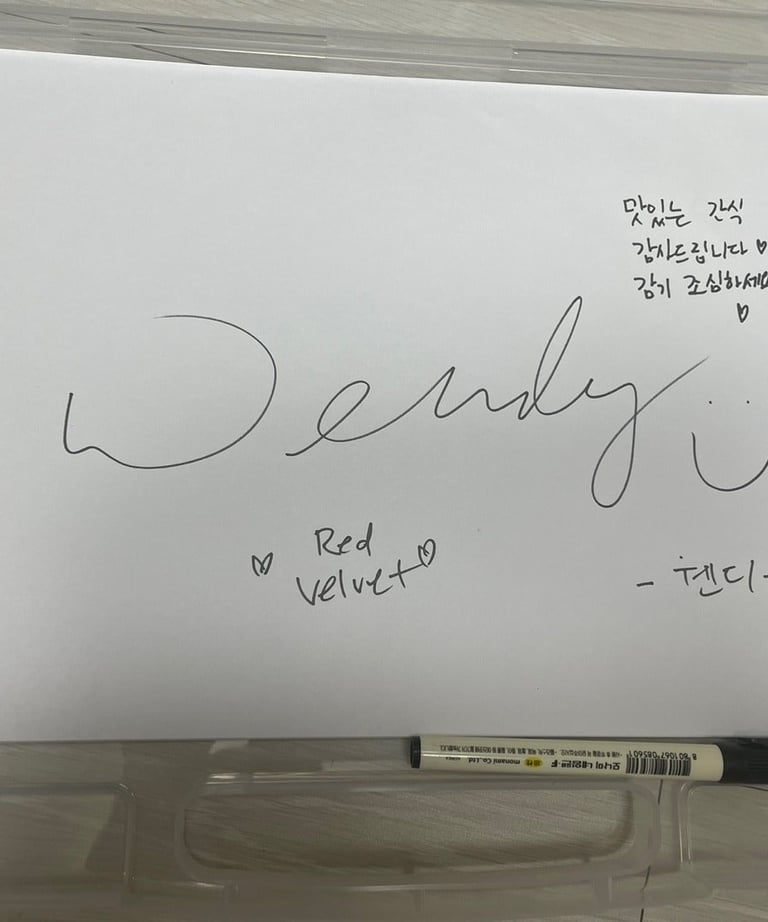 맛있는 간식
감사드립니다♡
감기 조심하세요
♡
Wendy
Red
Velvet
- 웬디 -
8 801067 085601
모나미 네임펜 F
monami Co.,Ltd.